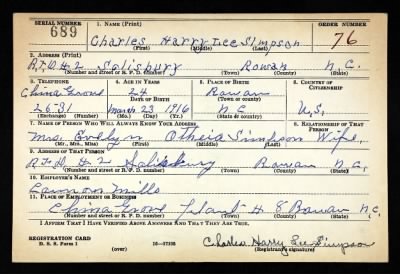 SERIAL NUMBER 1. NAME (Print) ORDER NUMBER
689 Charles Harry Lee Simpson 76
(First) (Middle) (Last)
2. ADDRESS (Print)
R.F.D. #2 Salisbury Rowan N.C.
(Number and street or R. F. D. number) (Town) (County) (State)
3. TELEPHONE 4. AGE IN YEARS 5. PLACE OF BIRTH 6. COUNTRY OF CITIZENSHIP
China Grove 24 Rowan
DATE OF BIRTH (Town or county)
2631 March 23 1916 N.C. U.S.
(Exchange) (Number) (Mo.) (Day) (Yr.) (State or country)
7. NAME OF PERSON WHO WILL ALWAYS KNOW YOUR ADDRESS 8. RELATIONSHIP OF THAT PERSON
Mrs. Evelyn Simpson Wife
(Mr., Mrs., Miss) (First) (Middle) (Last)
9. ADDRESS OF THAT PERSON
R.F.D. #2 Salisbury Rowan N.C.
(Number and street or R. F. D. number) (Town) (County) (State)
10. EMPLOYER'S NAME
Cannon Mills
11. PLACE OF EMPLOYMENT OR BUSINESS
China Grove Plant # 8 Rowan N.C.
(Number and street or R. F. D. number) (Town) (County) (State)
I AFFIRM THAT I HAVE VERIFIED ABOVE ANSWERS AND THAT THEY ARE TRUE.
REGISTRATION CARD
D. S. S. Form 1 (over) Charles Harry Lee Simpson
(Registrant's signature)